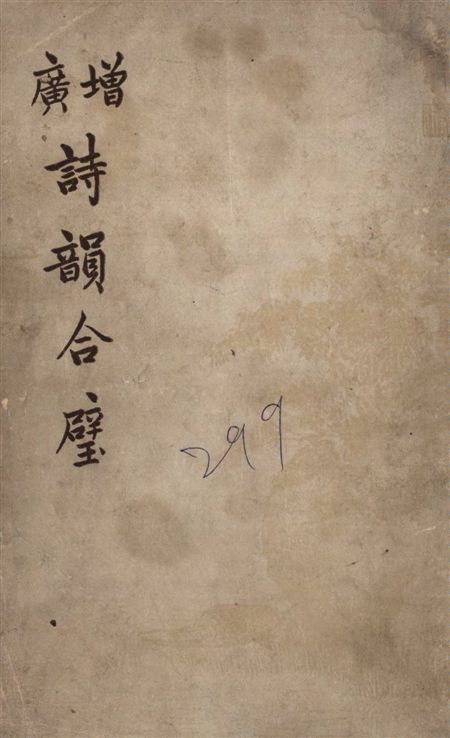 增廣
詩韻合璧
299